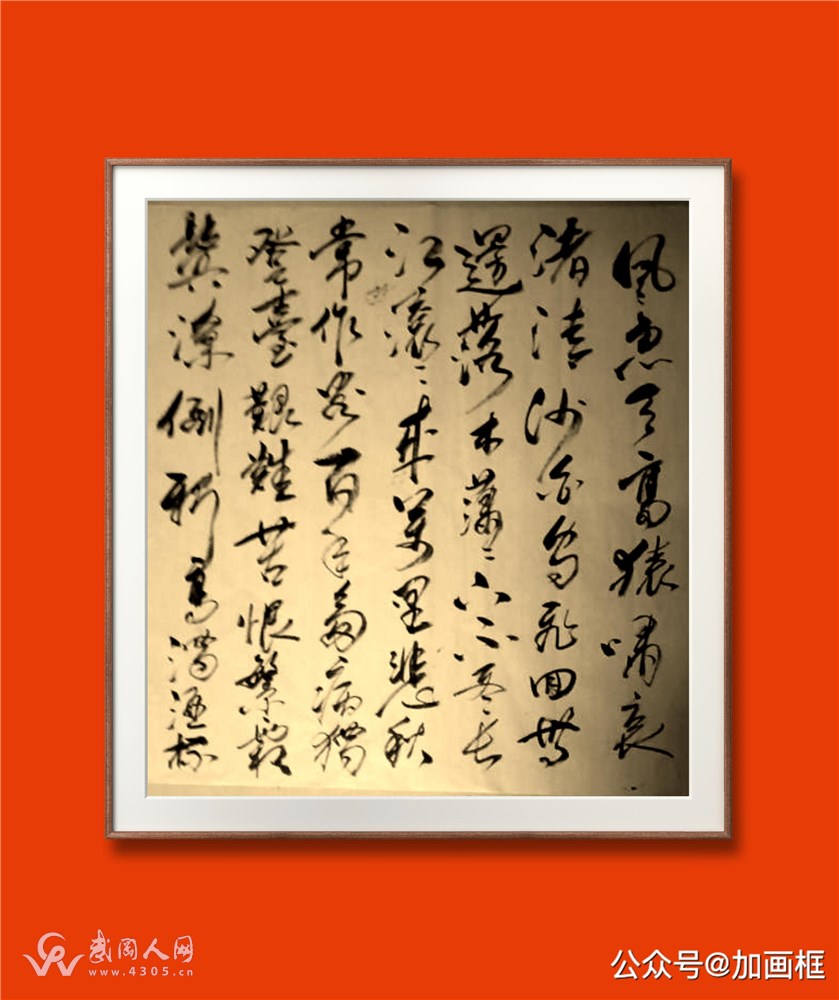 風急天高猿嘯哀
渚清沙白鳥飛回無
邊落木蕭〻下不尽長
江滾〻來萬里悲秋
常作客百年多病獨
登臺艱難苦恨繁霜
鬢潦倒新亭濁酒杯
武冈人网
www.4305.cn
公众号@加画框